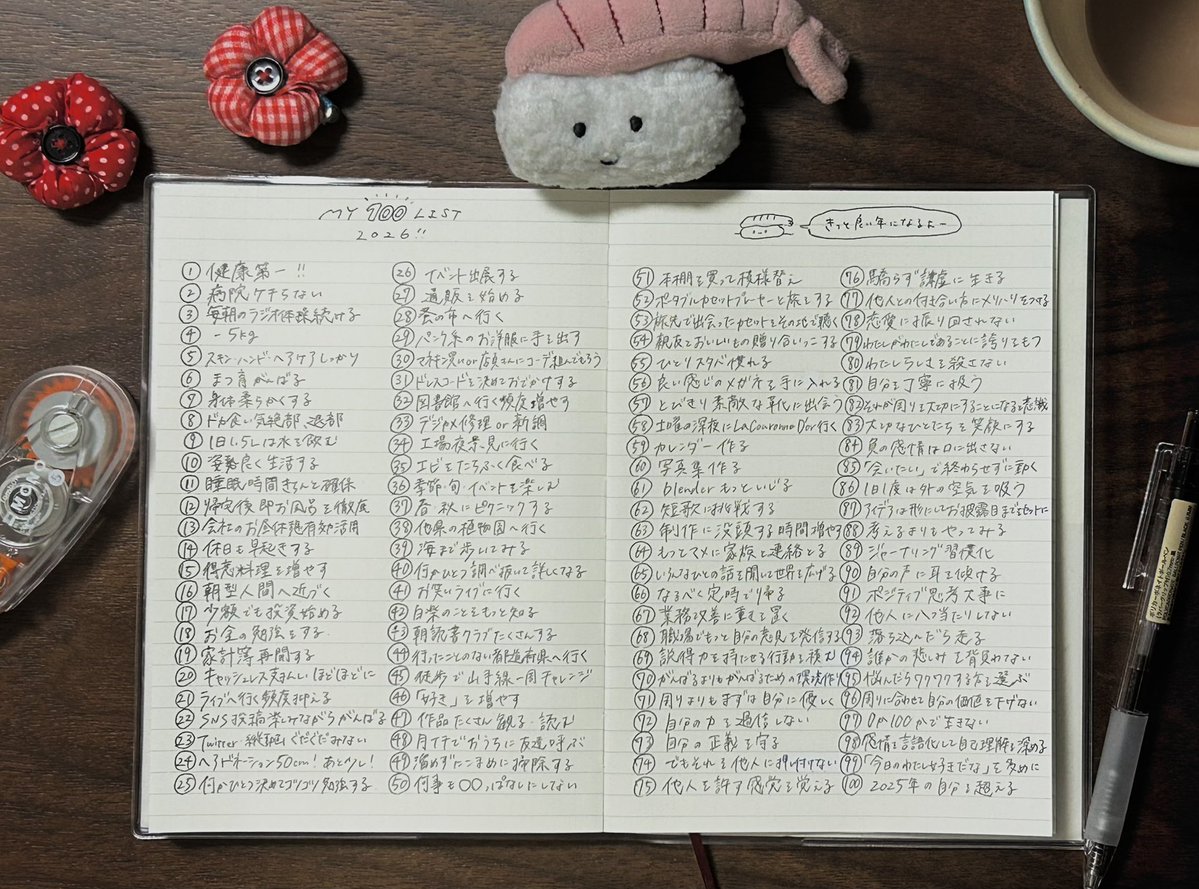 MY 100 LIST
2026!!
① 健康第一!!
② 病院ケチらない
③ 毎朝のラジオ体操続ける
④ -5kg
⑤ スキン・ハンド・ヘアケアしっかり
⑥ まつ育がんばる
⑦ 身体柔らかくする
⑧ ドカ食い気絶部、退部
⑨ 1日1.5Lは水を飲む
⑩ 姿勢良く生活する
⑪ 睡眠時間きちんと確保
⑫ 帰宅後即お風呂を徹底
⑬ 会社のお昼休憩有効活用
⑭ 休日も早起きする
⑮ 得意料理を増やす
⑯ 朝型人間へ近づく
⑰ 少額でも投資始める
⑱ お金の勉強をする
⑲ 家計簿再開する
⑳ キャッシュレス支払いほどほどに
㉑ ライブへ行く頻度抑える
㉒ SNS投稿楽みながらがんばる
㉓ Twitter・縦動画ぐだぐだみない
㉔ ヘアドネーション50cm!あと少し!
㉕ 何かひとつ決めてコツコツ勉強する
㉖ イベント出展する
㉗ 通販を始める
㉘ 蚤の市へ行く
㉙ パンク系のお洋服に手を出す
㉚ マネキン買い or 店員さんにコーデ組んでもらう
㉛ ドレスコードを決めておでかけする
㉜ 図書館へ行く頻度増やす
㉝ デジカメ修理 or 新調
㉞ 工場夜景見に行く
㉟ エビをたらふく食べる
㊱ 季節・旬・イベントを楽しむ
㊲ 春・秋にピクニックする
㊳ 他県の植物園へ行く
㊴ 海まで歩いてみる
㊵ 何かひとつ調べ抜いて詳しくなる
㊶ お笑いライブに行く
㊷ 自楽のことをもっと知る
㊸ 朝読書クラブたくさんする
㊹ 行ったことのない都道府県へ行く
㊺ 徒歩で山手線一周チャレンジ
㊻ 「好き」を増やす
㊼ 作品たくさん観る・読む
㊽ 月イチでおうちに友達呼ぶ
㊾ 溜めずにこまめに掃除する
㊿ 何事も〇〇っぱなしにしない
きっと良い年になるよー
51 本棚を買って模様替え
52 ポータブルカセットプレーヤーと旅をする
53 旅先で出会ったカセットをその地で聴く
54 親友とおいしいもの贈り合いっこする
55 ひとりスタバ慣れる
56 良い感じのメガネを手に入れる
57 とびきり素敵な革靴に出会う
58 土曜の深夜にLa Couronne D'or行く
59 カレンダー作る
60 写真集作る
61 blenderもっといじる
62 短歌に挑戦する
63 制作に没頭する時間増やす
64 もっとマメに家族と連絡とる
65 いろんなひとの話を聞いて世界を広げる
66 なるべく定時で帰る
67 業務改善に重きを置く
68 職場でもっと自分の意見を発信する
69 説得力を持たせる行動を積む
70 がんばるよりもがんばるための環境作り
71 周りよりもまずは自分に優しく
72 自分の力を過信しない
73 自分の正義を守る
74 でもそれを他人に押し付けない
75 他人を許す感覚を覚える
76 驕らず謙虚に生きる
77 他人との付き合い方にメリハリをつける
78 恋愛に振り回されない
79 わたしがわたしであることに誇りをもつ
80 わたしらしさを殺さない
81 自分を丁寧に扱う
82 それが周りを大切にすることになると意識
83 大切なひとたちを笑顔にする
84 負の感情は口に出さない
85 「会いたい」で終わらせずに動く
86 1日1度は外の空気を吸う
87 アイデアは形にしてお披露目までをセットに
88 考えるよりもやってみる
89 ジャーナリング習慣化
90 自分の声に耳を傾ける
91 ポジティブ思考大事に
92 他人に八つ当たりしない
93 落ち込んだら走る
94 誰かの悲しみを背負わない
95 悩んだらワクワクする方を選ぶ
96 周りに合わせて自分の価値を下げない
97 0か100かで生きない
98 感情を言語化して自己理解を深める
99 「今日のわたしも好きだな」を多めに
100 2025年の自分を超える